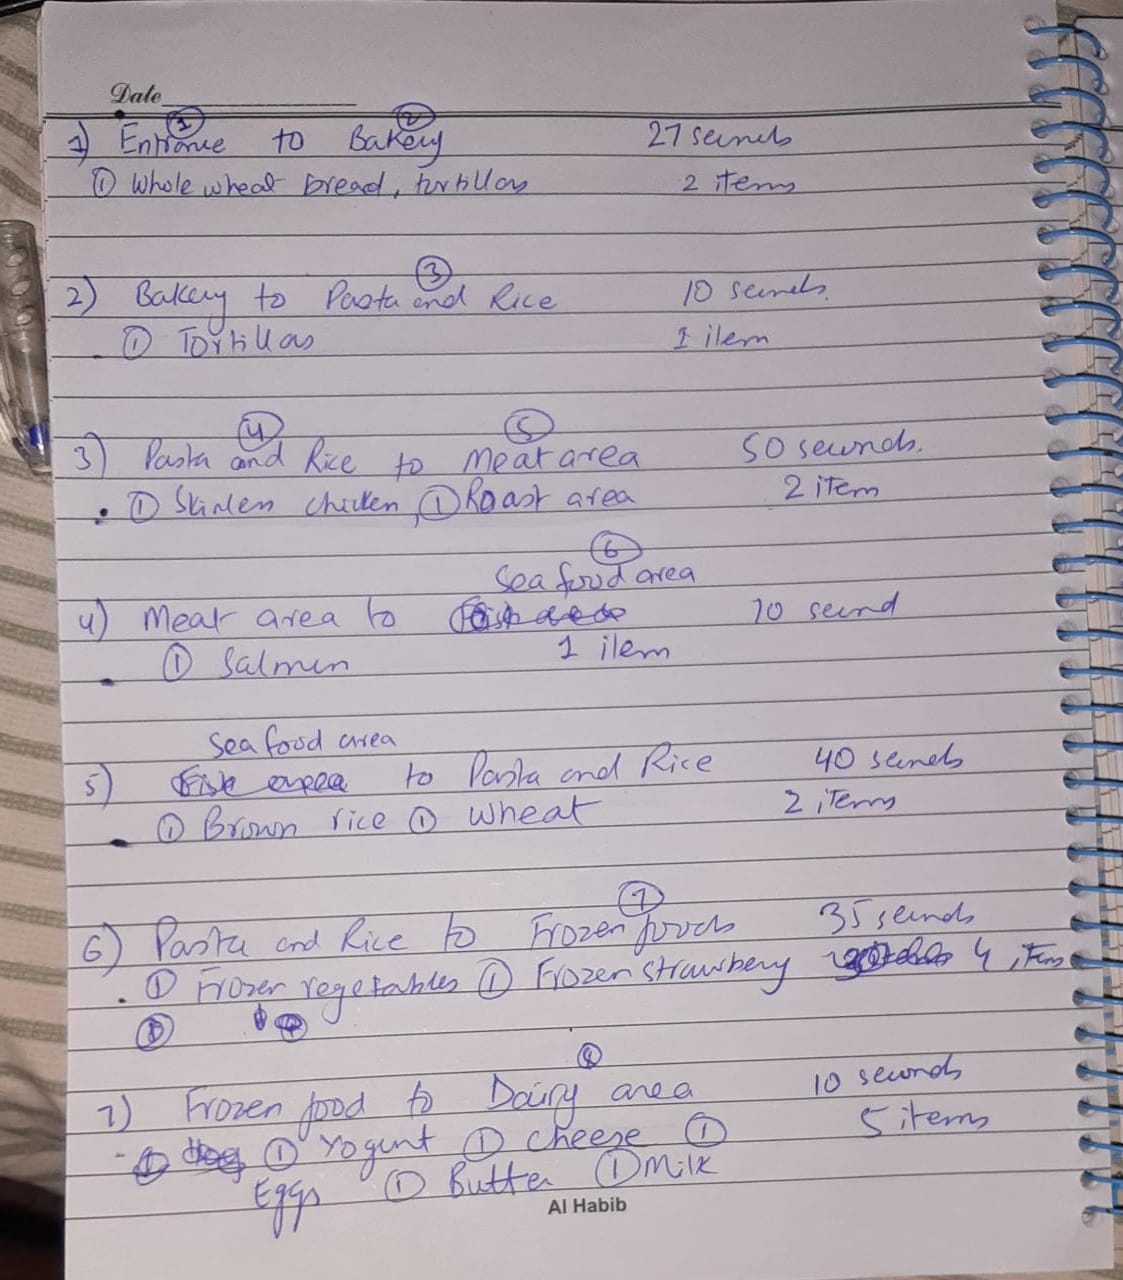 Date
① ②
1) Entrance to Bakery 27 seconds
① Whole wheat bread, tortillas 2 items
③
2) Bakery to Pasta and Rice 10 seconds.
① Tortillas 1 item
④ ⑤
3) Pasta and Rice to Meat area 50 seconds.
• ① Skinless chicken, ① Roast area 2 item
⑥
Sea food area
4) Meat area to 10 second
① Salmon 1 item
Sea food area
5) to Pasta and Rice 40 seconds
① Brown rice ① wheat 2 items
⑦
6) Pasta and Rice to Frozen foods 35 seconds
• ① Frozen vegetables ① Frozen strawberry 4 items
⑧
7) Frozen food to Dairy area 10 seconds
- ① Yogurt ① cheese ① 5 items
Eggs ① Butter ① Milk
Al Habib